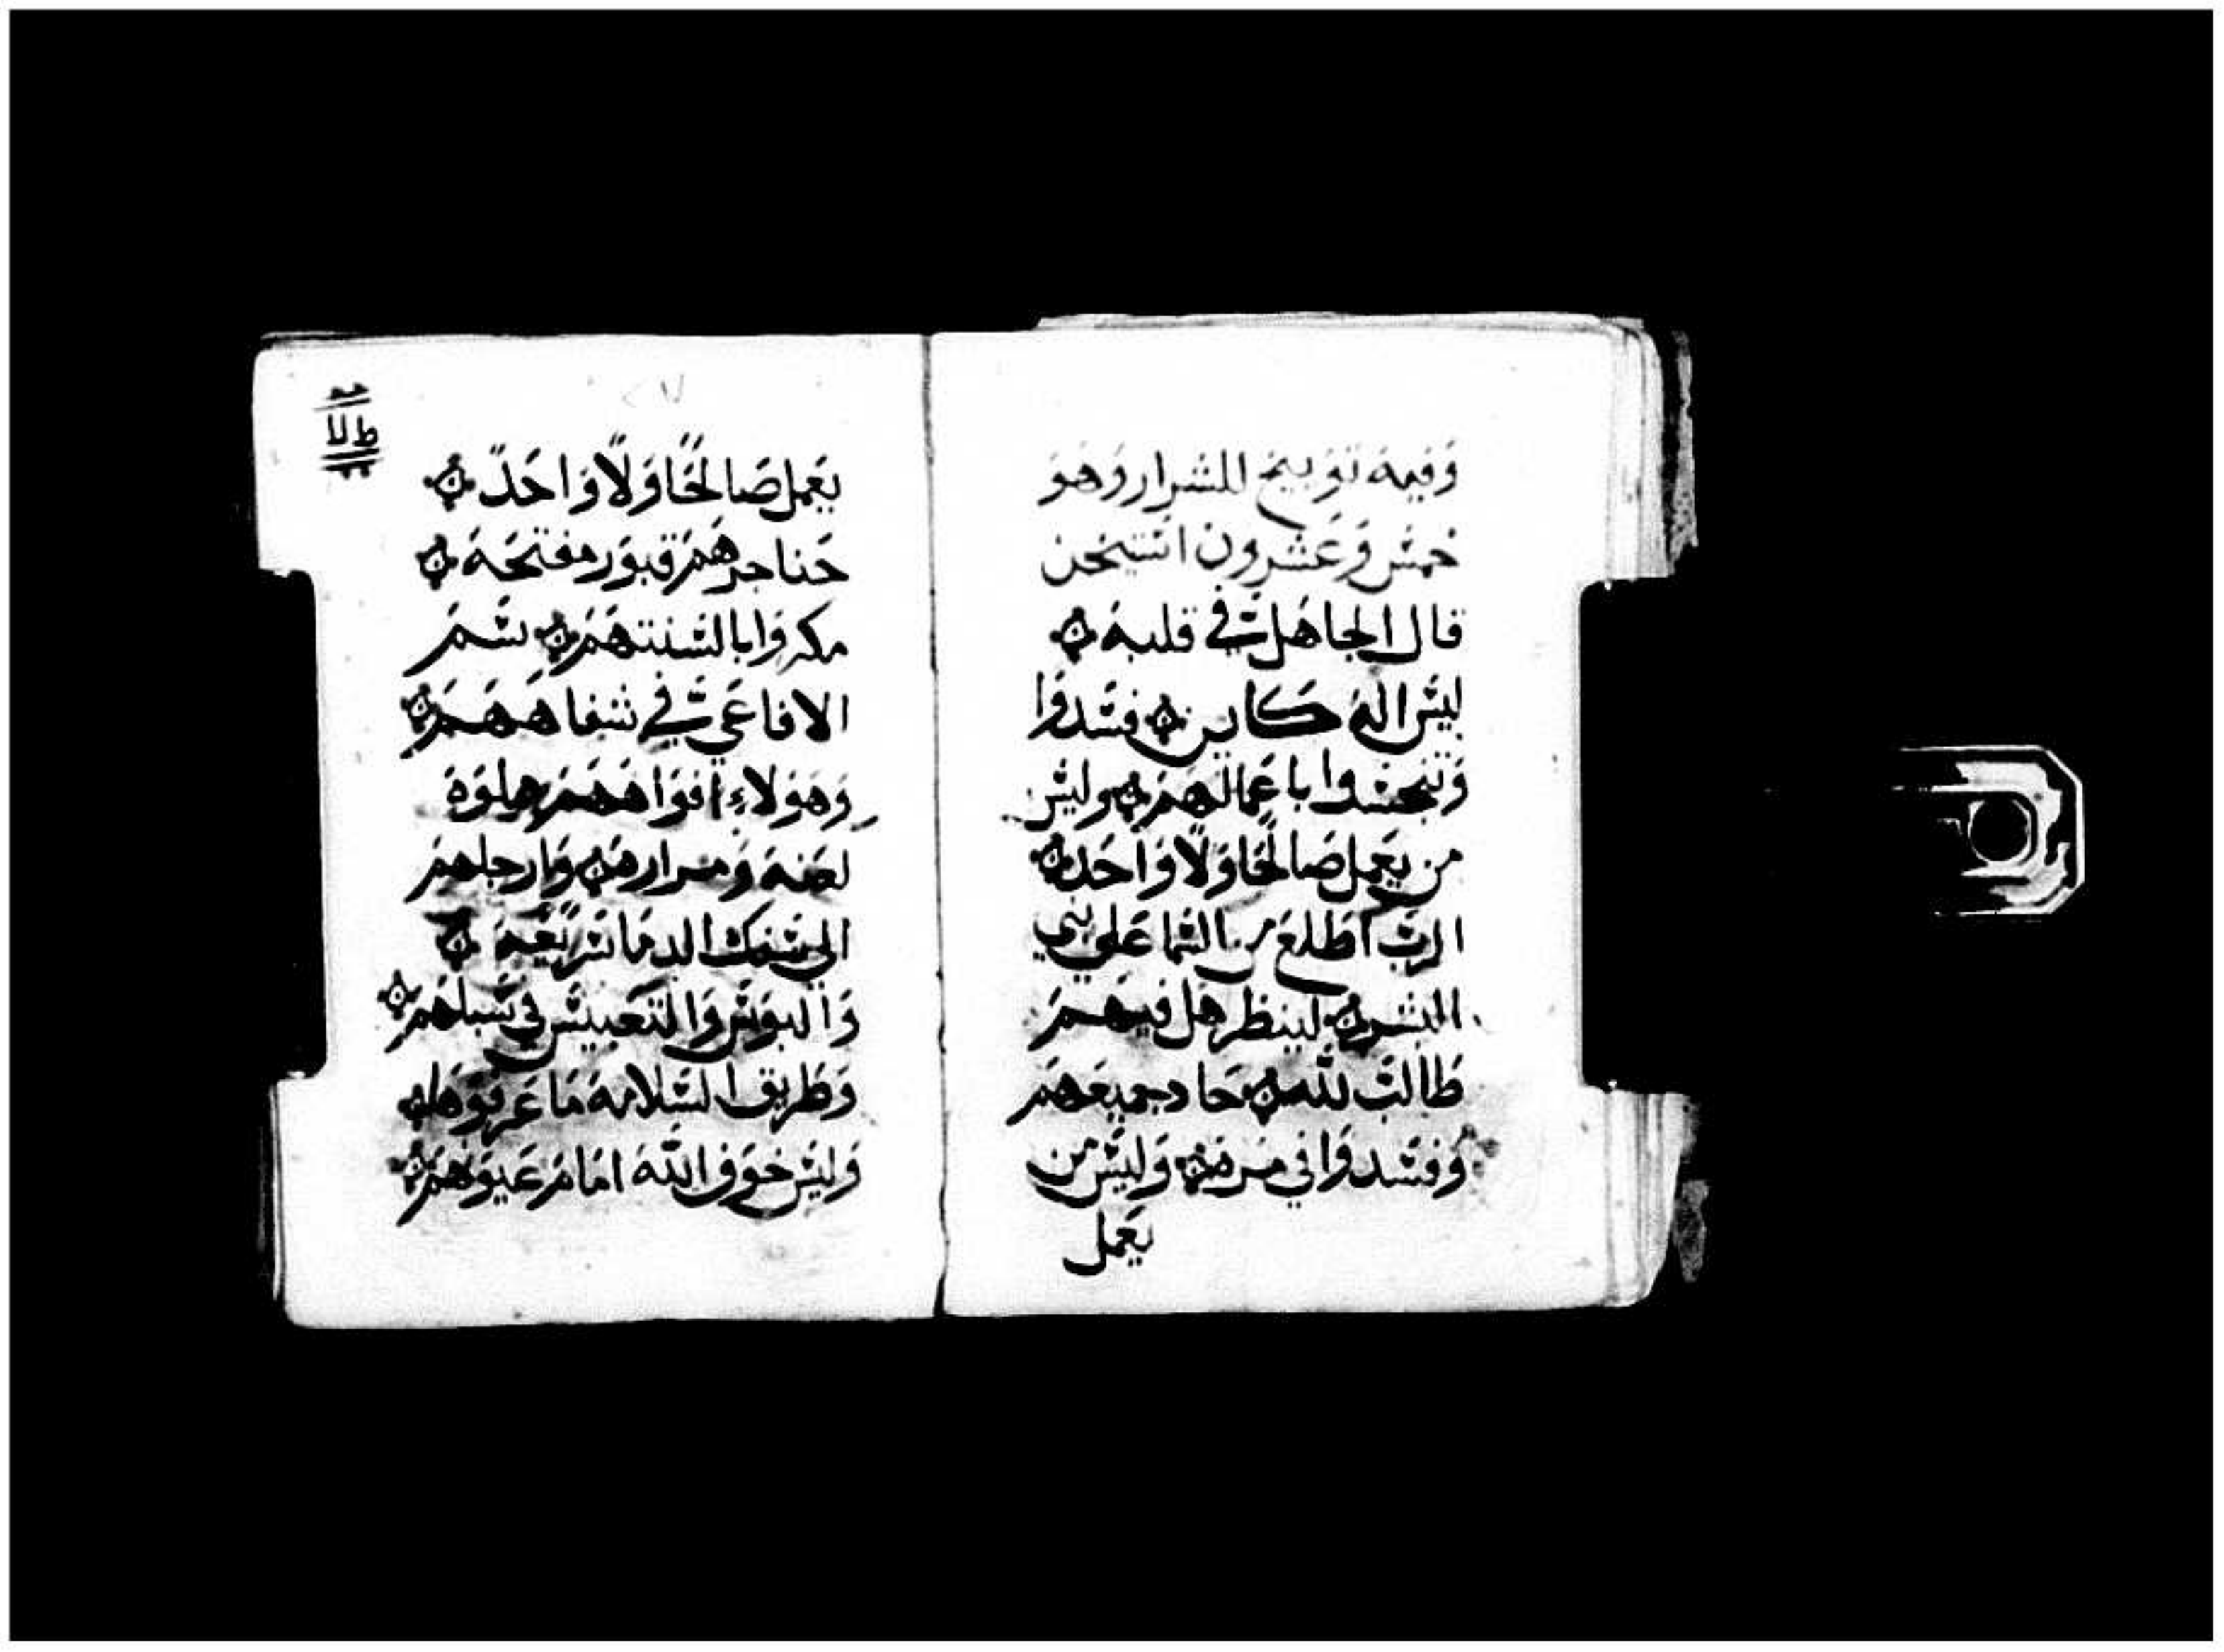 وَفيهَ توَبيخ للشرار وَهوَ
خمسَ وَعشرون استيخن
قال الجاهلَ في قلبهَ
ليسَ اله كاين فسَدوَا
وَتنجسَوا باعَمالهَمَ وليسَ
من يعَمل صَالحًا وَلَا وَاحَد
الربَ اطَلعَ من السَما عَلي بني
البشر لينظر هَل فيهَمَ
طَالبَ للهَ حَاد جميعَهمَ
وَفسَدوَا في مرمَه وَليسَ من
يعَمل
٢٧
يعَمل صَالحًا وَلًا وَاحَدً
حَناجرهَمَ قبوَر مفتحَهَ
مكروَا بالسَنتهَمَ سَمَ
الافاعَي في شفاهَهَمَ
وَهوَلاءِ افوَاهَهَمَ مملوَهَ
لعَنهَ وَمرارهَ وَارجلهمَ
الي سَفك الدمَا سَريعَهَ
وَالبوَسَ وَالتعَبيسَ في سَبلهَمَ
وَطَريق السَلامهَ مَا عَرفوَهَا
وَليسَ خوَف اللهَ امَامَ عَيوَنهَمَ